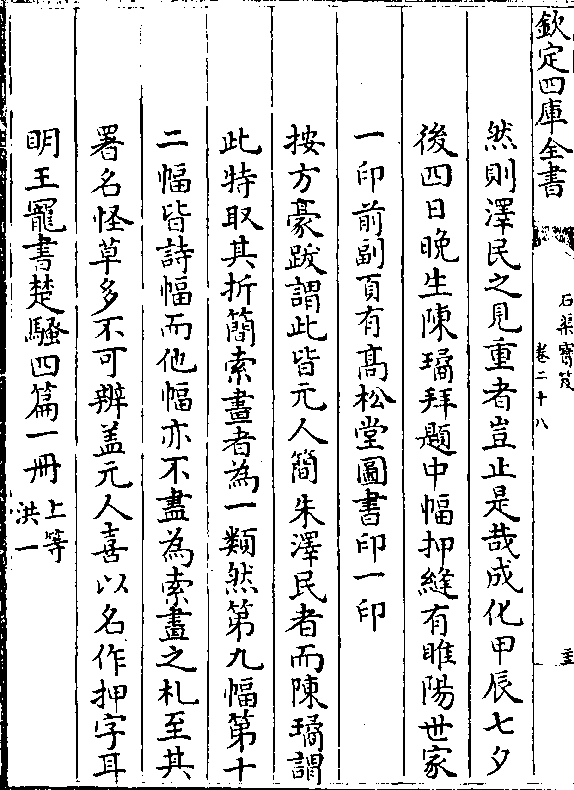 欽定四庫全書
石渠寶笈
卷二十八
然則澤民之見重者豈止是哉成化甲辰七夕
後四日晚生陳璚拜題中幅押縫有睢陽世家
一印前副頁有髙松堂圖書印一印
按方豪跋謂此皆元人簡朱澤民者而陳璚謂
此特取其折簡索畫者為一類然第九幅第十
二幅皆詩幅而他幅亦不盡為索畫之札至其
署名怪草多不可辨盖元人喜以名作押字耳
明王寵書楚騷四篇一冊
上等
洪一